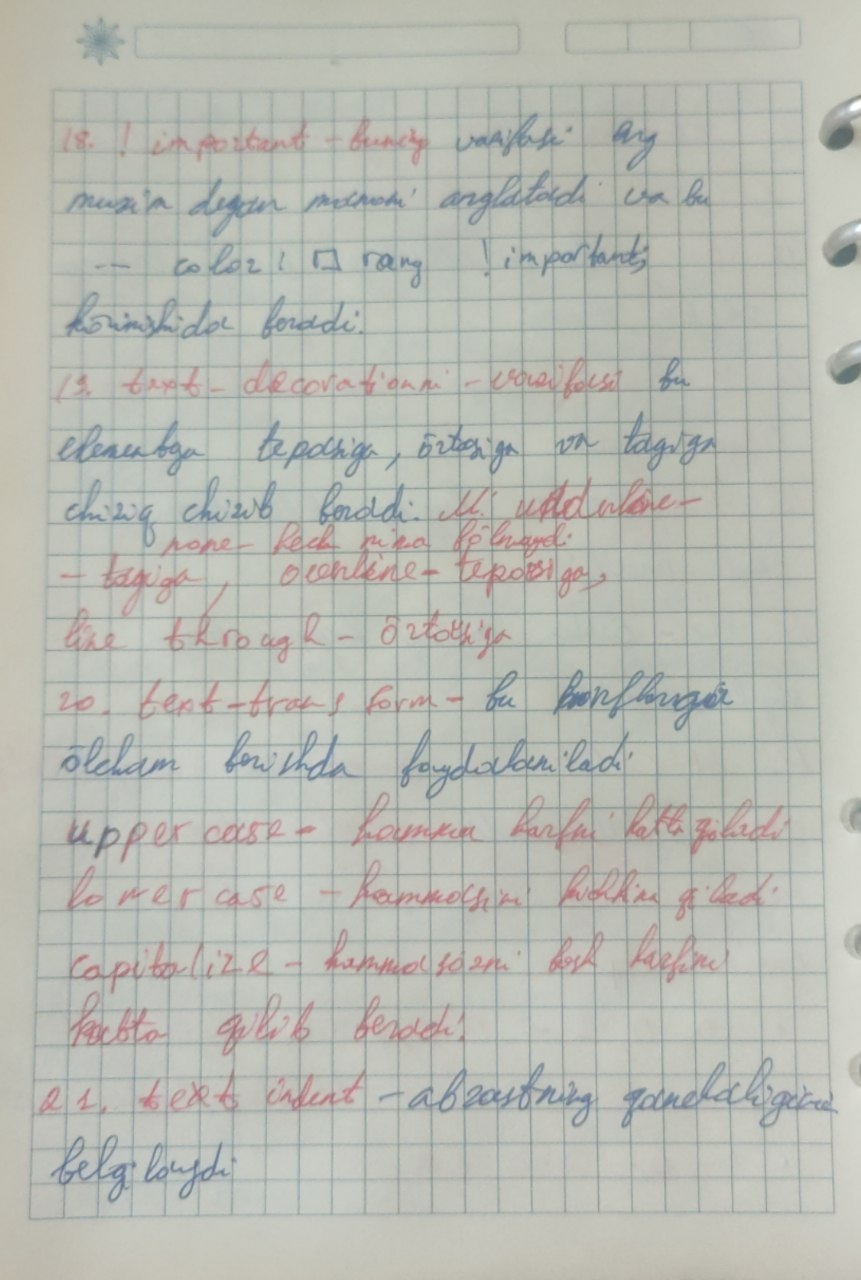 18. ! important - buning vazifasi eng
muxim degan manoni anglatadi va bu
-- color: rang !important;
kõrinishida boradi.
19. text-decorationni - vazifasi bu
elementga tepasiga, õrtasiga va tagiga
chiziq chizib beradi. M: underline-
none- hech nima bõlmaydi
- tagiga, overline- tepasiga,
line through - õrtasiga
20. text-transform - bu
õlcham berishda foydalaniladi
uppercase - hamma harfni katta qiladi
lowercase - hammasini kichkina qiladi
capitalize - hamma sõzni bosh harfini
katta qilib beradi.
21. text indent - abzastning qanchaligini
belgilaydi